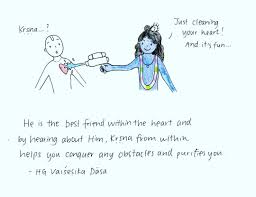 Krsna...?
Just cleaning
your heart!
And its fun...
He is the best friend within the heart and
by hearing about Him, Krsna from within
helps you conquer any obstacles and purifies you
- HG Vaiśeṣika Dāsa